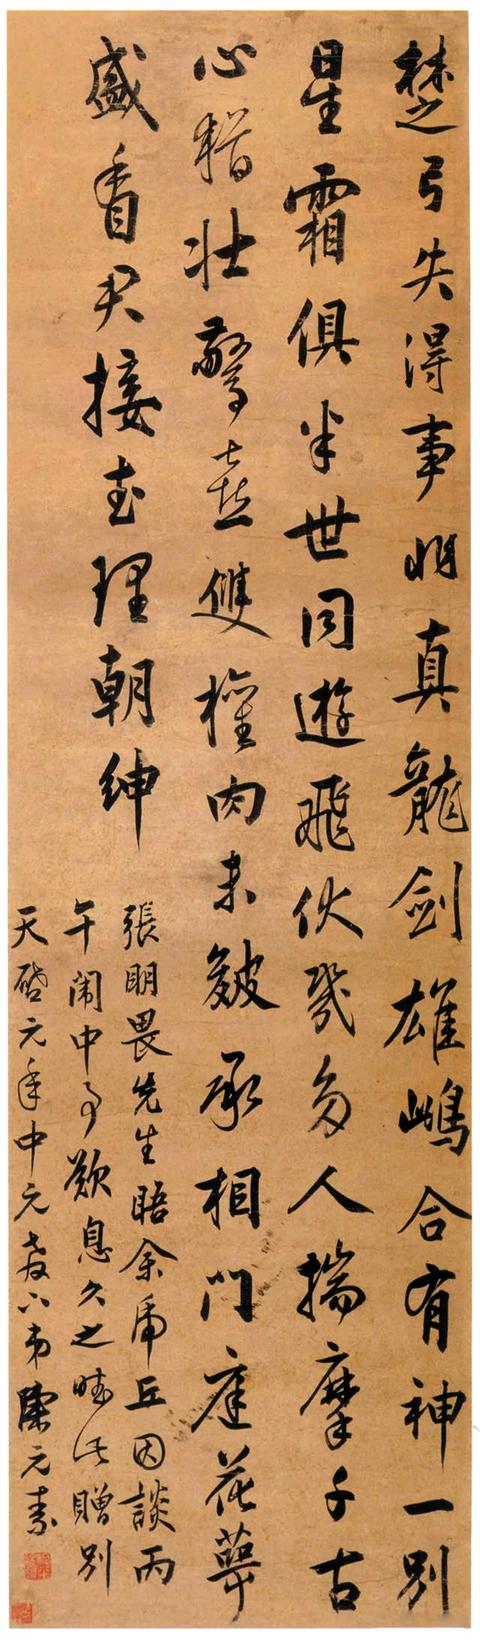 楚弓失得事非真龍劍雄雌合有神一別
星霜俱半世同遊飛伏幾多人揣摩千古
心猶壯驚喜雙權肉未皴承相門庭花萼
盛看君接武理朝紳
張明畏先生晤余虎丘因談丙
午闈中事歎息久之賦此贈別
天啓元年中元教下弟陳元素